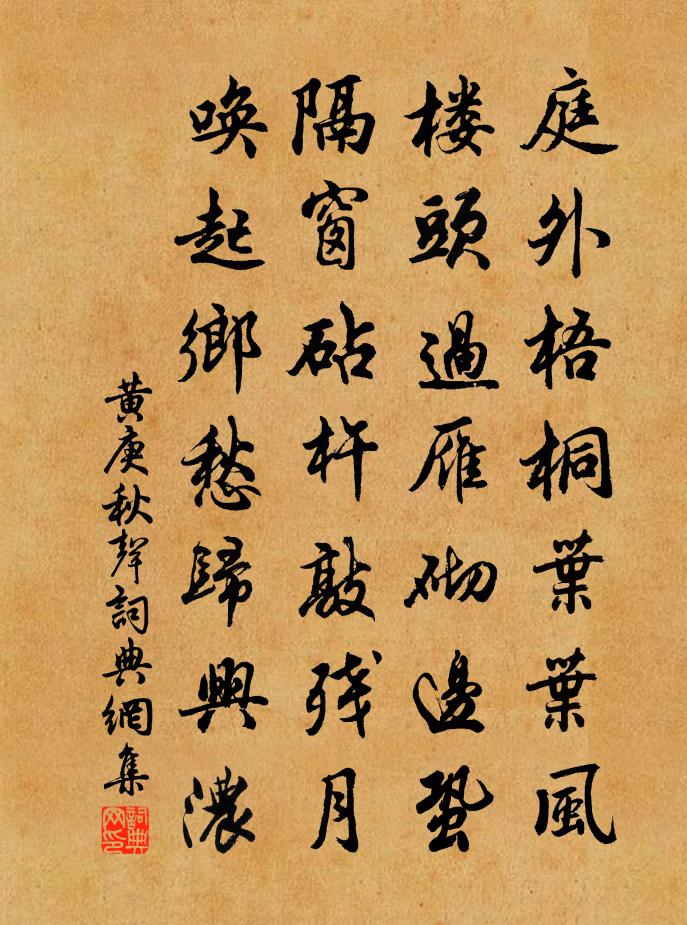 庭外梧桐葉葉風
楼頭過雁砌邊蛩
隔窗砧杵敲残月
唤起鄉愁歸興濃
黄庚秋聲詞典網集
詞典网印